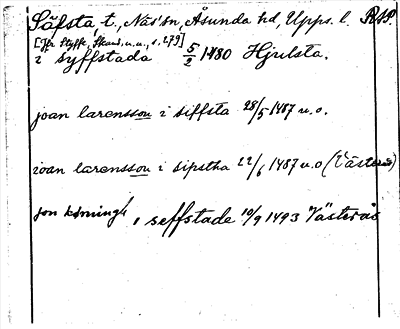 Säfsta, t., Näs' sn, Åsunda hd, Upps. l. RAP.
[Jfr Styffe, Skand. u. u., s. 279]
i syffstada 5/2 1480 Hjulsta.
joan larensson i siffsta 28/5 1487 u. o.
ioan larensson i sipstha 22/6 1487 u. o (Västerås)
jon i seffstade 10/9 1493 Västerås